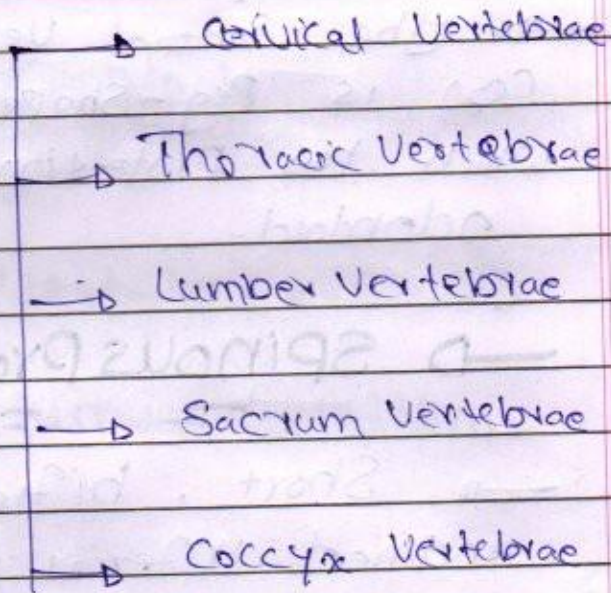 Cervical Vertebrae
Thoracic Vertebrae
Lumber Vertebrae
Sacrum Vertebrae
Coccyx Vertebrae